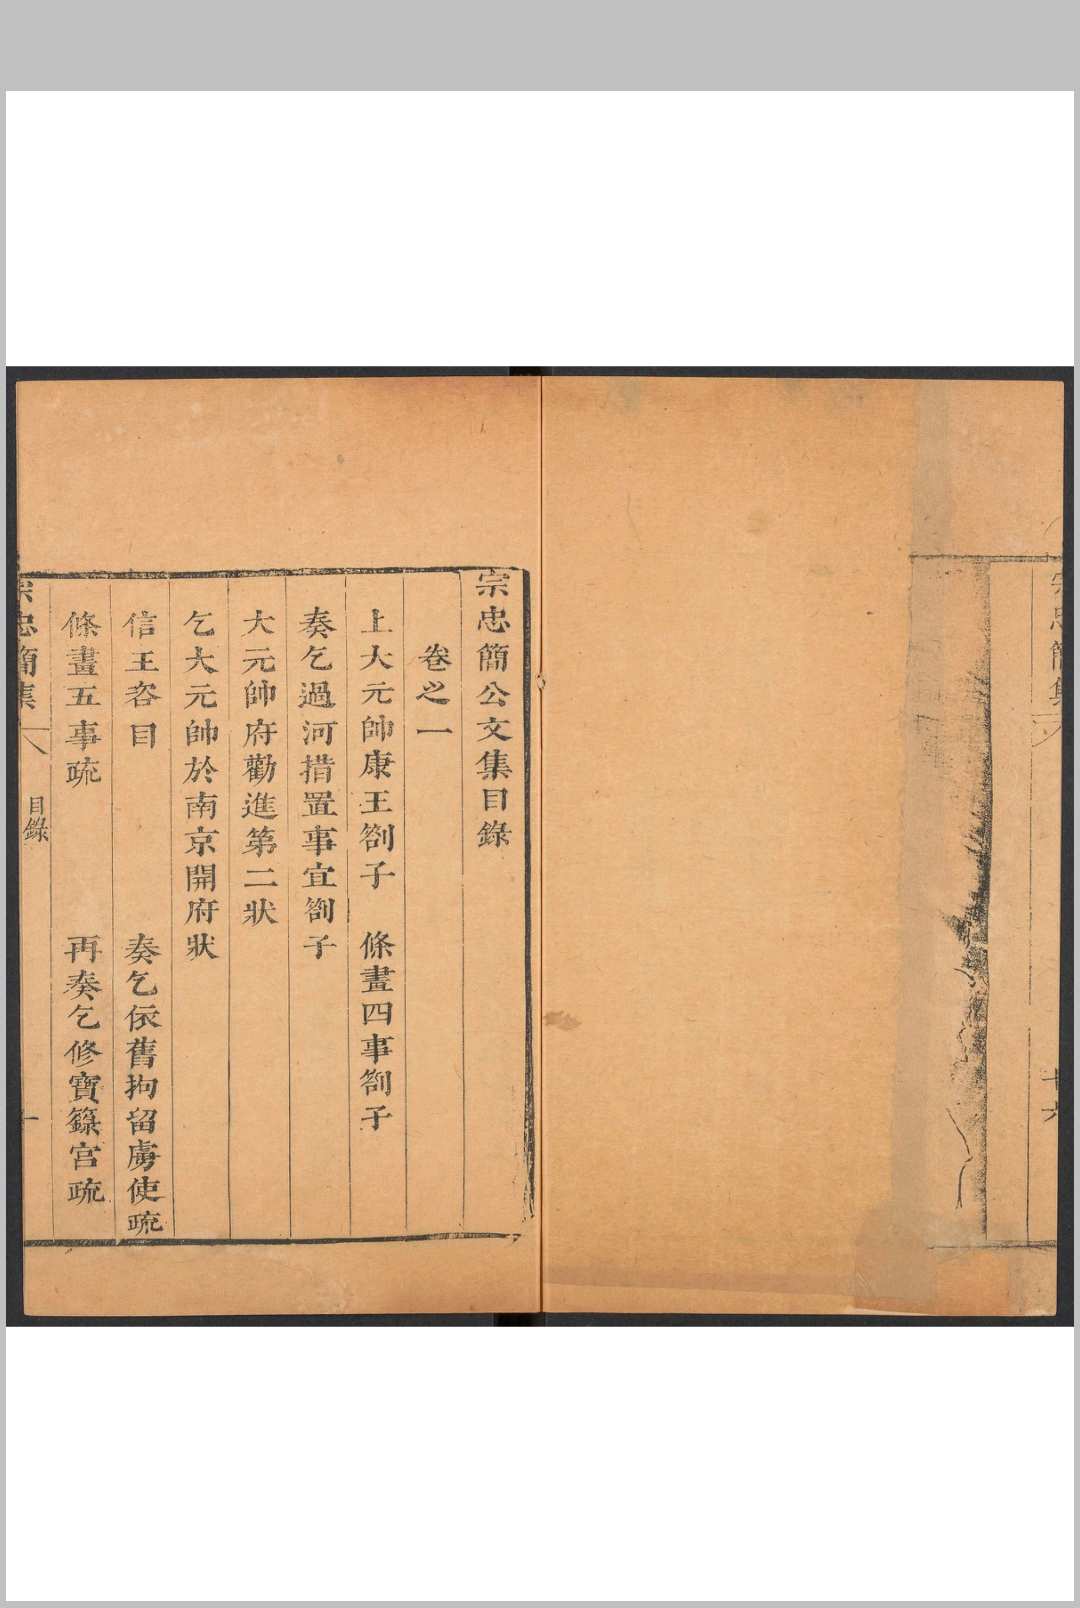 宗忠簡集
十六
宗忠簡公文集目錄
卷之一
上大元帥康王劄子　條畫四事劄子
奏乞過河措置事宜劄子
大元帥府勸進第二狀
乞大元帥於南京開府狀
信王咨目　奏乞依舊拘留虜使疏
條畫五事疏　再奏乞修寶籙宮疏
宗忠簡集
目錄
一